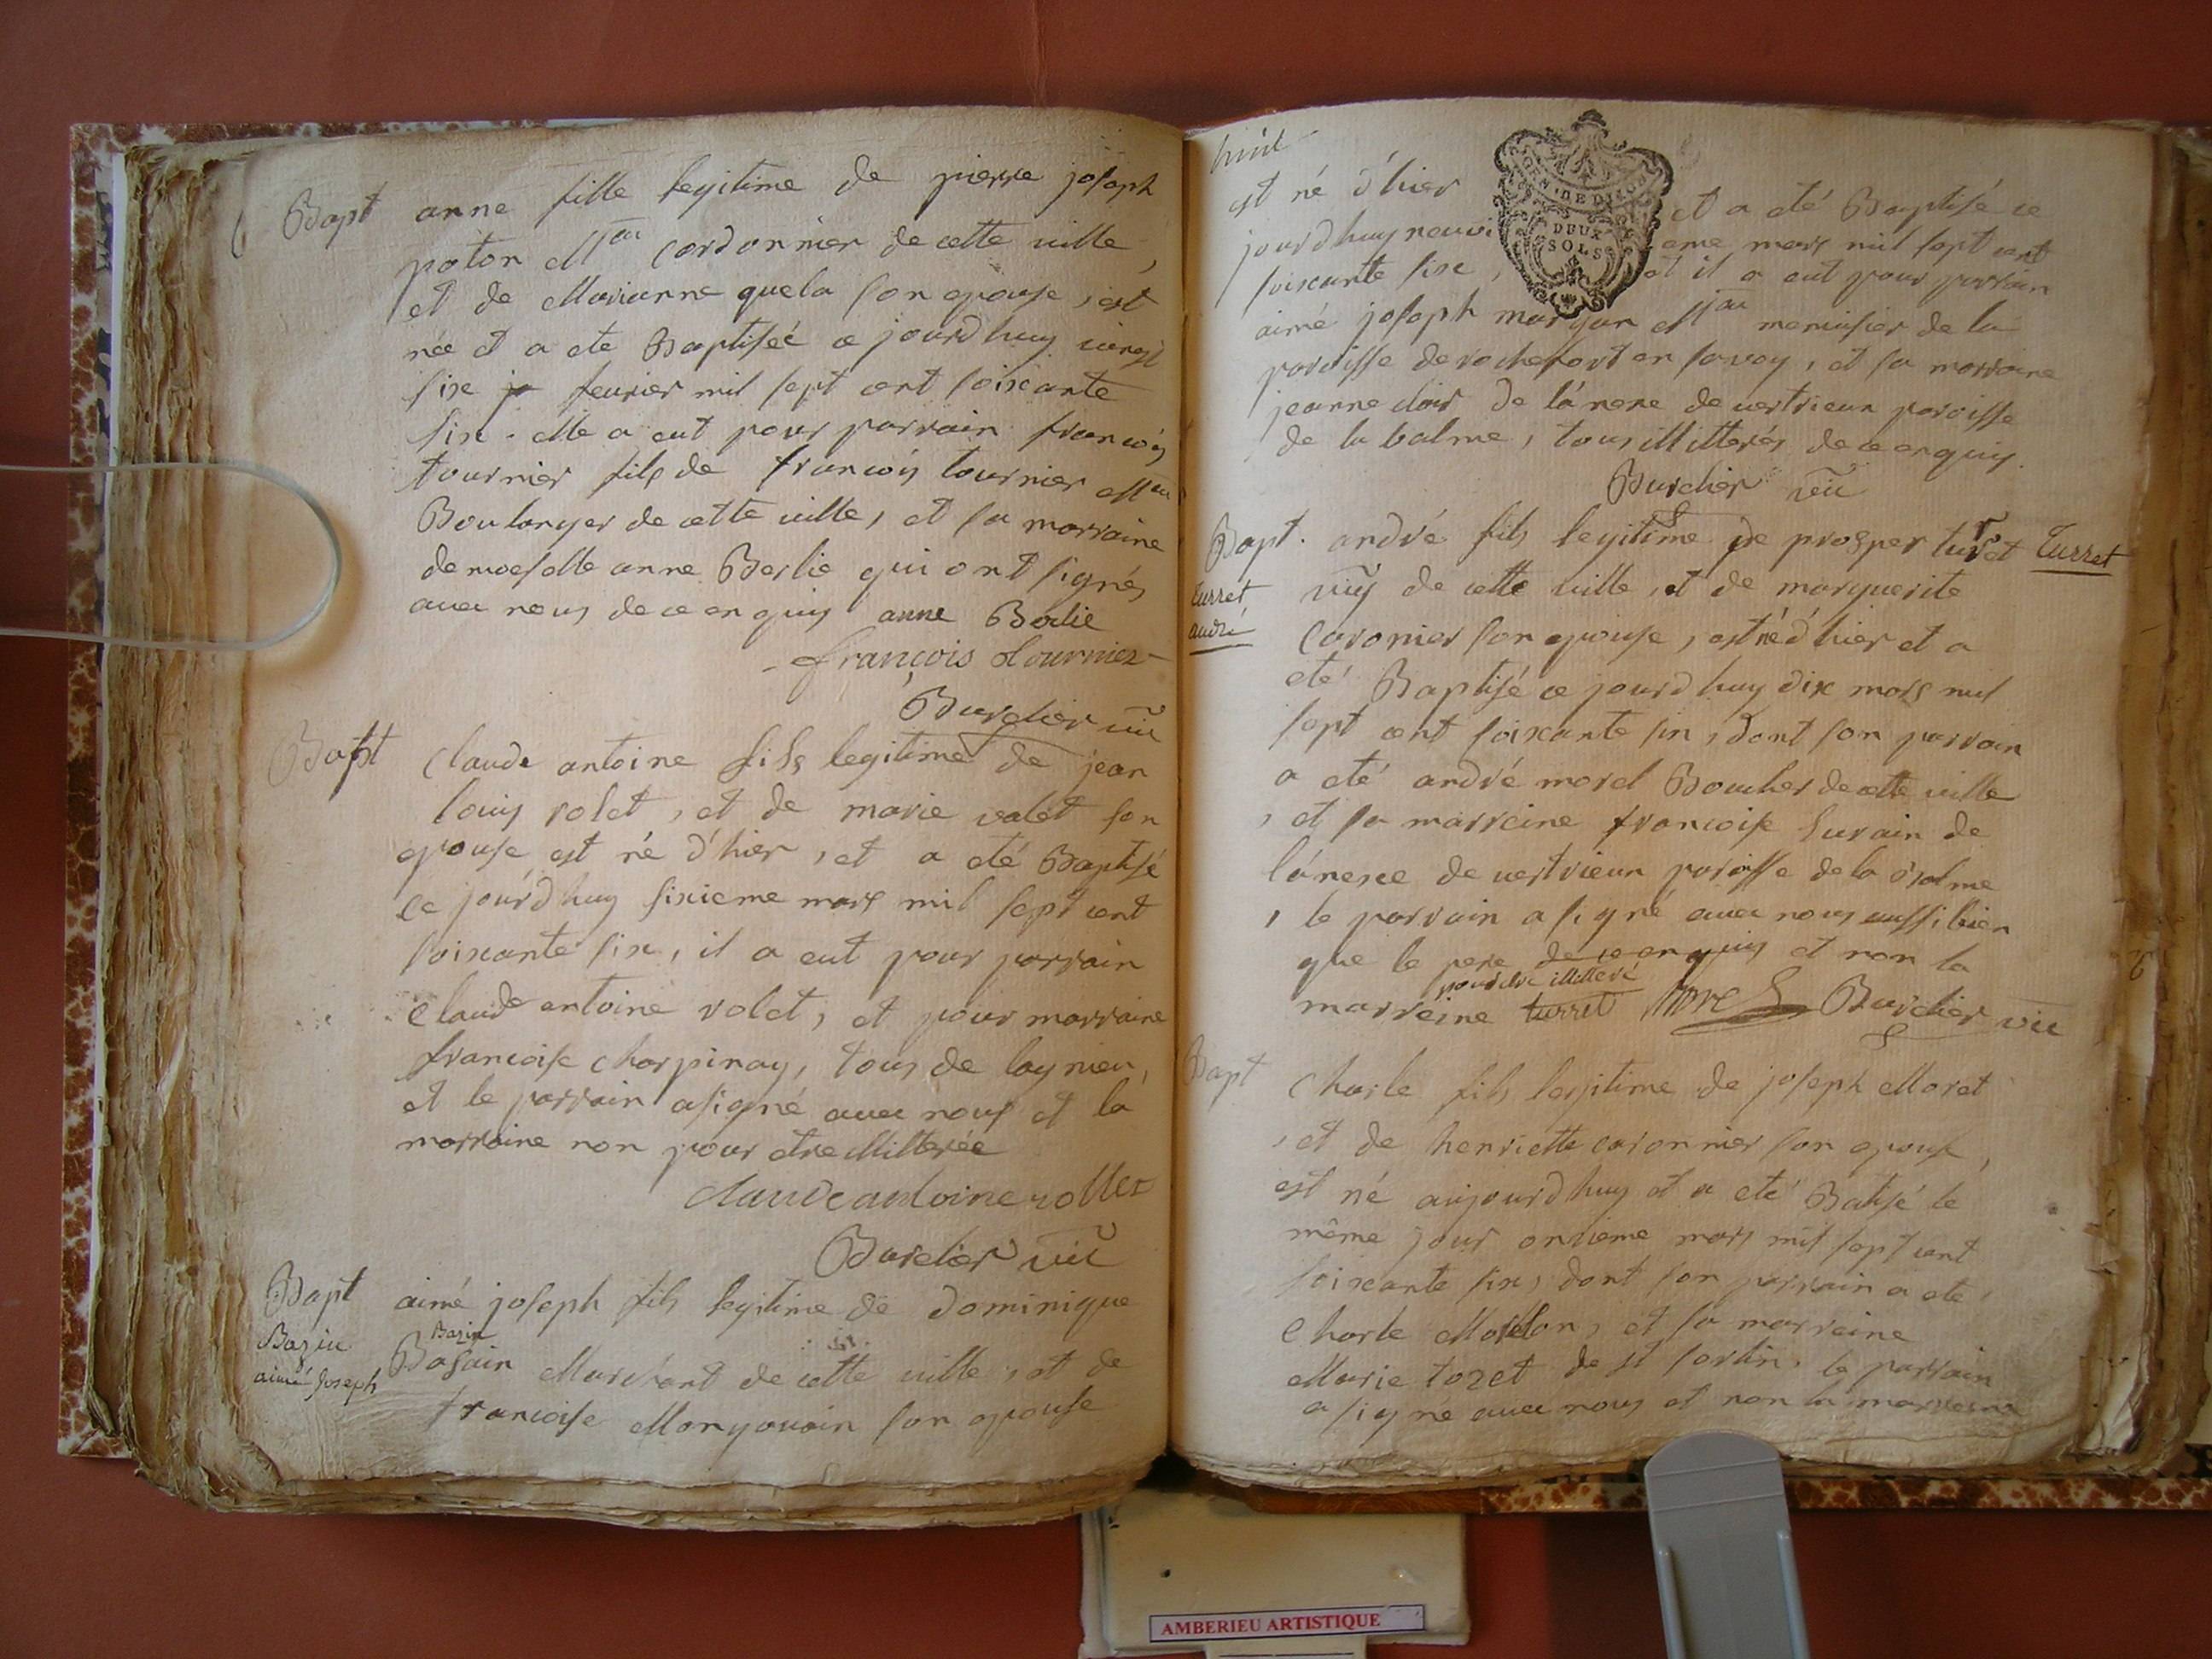 Bapt anne fille legitime de pierre joseph
poton Mtre cordonnier de cette ville,
et de Marianne quela son epouse, est
née et a ete Baptiseé ce jourdhuy vingt
six fevrier mil sept cent soixante
six. elle a eut pour parrain francois
tournier fils de francois tournier Mtre
Boulanger de cette ville, et sa marraine
demoiselle anne Berlie qui ont signés
avec nous de ce enquis anne Berlie
françois Tournier
Burelier vic
Bapt Claude antoine fils legitime de jean
louis rolet, et de marie valet son
epouse est né d'hier, et a eté Baptisé
ce jourd'huy sixieme mars mil sept cent
soixante six, il a eut pour parrain
Claude antoine rolet, et pour marraine
francoise charpinay, tous de lagnieu,
et le parrain a signé avec nous et la
marraine non pour etre illiterée
claude antoine rollet
Burelier vic
Bapt aimé joseph fils legitime de dominique
Bazin Bazin
aimé Joseph Basain Marchant de cette ville, et de
francoise Mongouvin son epouse
huit
est né d'hier et a eté Baptisé ce
jourdhuy neuvieme mars mil sept cent
GEN. DE DIJON
DEUX
SOLS
soixante six, et il a eut pour parrain
aimé joseph Mtre menuisier de la
paroisse de rochefort en savoy, et sa marraine
jeanne de vertrieux paroisse
de la balme, tous illitterés de ce enquis.
Burelier vic
Bapt. andré fils legitime de prosper turet Turret
Turret vig de cette ville, et de marguerite
andré caronier son epouse, est né d'hier et a
eté Baptisé ce jourdhuy dix mars mil
sept cent soixante six, dont son parrain
a eté andré morel Boucher de cette ville
, et sa marreine francoise de
de vertrieux paroisse de la Balme
, le parrain a signé avec nous aussi bien
que le pere de ce enquis et non la
pour etre illiteré
marreine turret Morel Burelier vic
Bapt Charle fils legitime de joseph Moret
, et de henriette caronnier son epouse,
est né aujourdhuy et a eté Batisé le
même jour onzieme mars mil sept cent
soixante six, dont son parrain a ete
Charle et sa marreine
Marie tozet de st sorlin, le parrain
a signe avec nous et non la marreine
AMBERIEU ARTISTIQUE